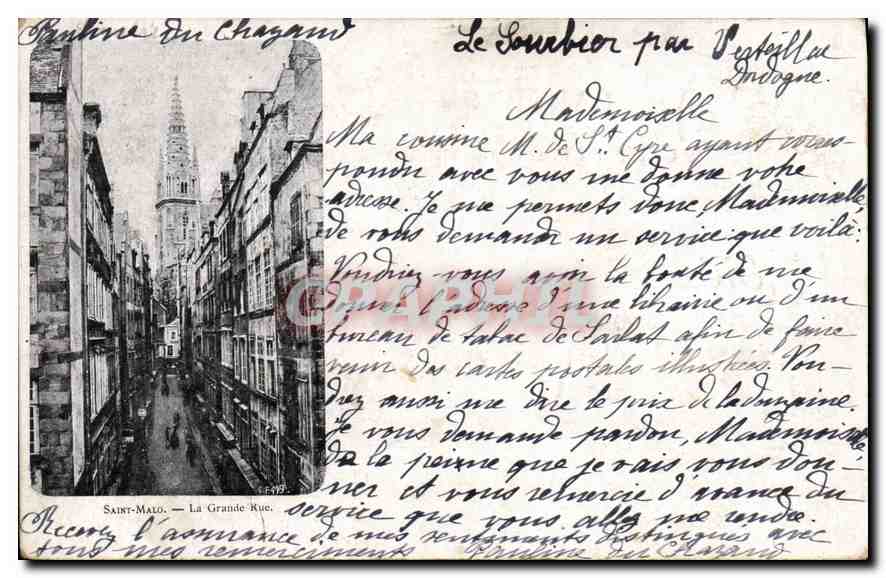 Pauline du Chazaud
Le Sourbier par Verteillac
Dordogne.
Mademoiselle
Ma cousine M. de St. Cyre ayant corres-
pondu avec vous me donne votre
adresse. Je me permets donc, Mademoiselle,
de vous demander un service que voilà:
Voudriez-vous avoir la bonté de me
donner l'adresse d'une librairie ou d'un
bureau de tabac de Sarlat afin de faire
venir des cartes postales illustrées. Vou-
drez aussi me dire le prix de la douzaine.
Je vous demande pardon, Mademoiselle
de la peine que je vais vous don-
ner et vous remercie d'avance du
service que vous allez me rendre.
Recevez l'assurance de mes sentiments distingués avec
tous mes remerciements Pauline du Chazaud
SAINT-MALO. — La Grande Rue.
CPAPHIL